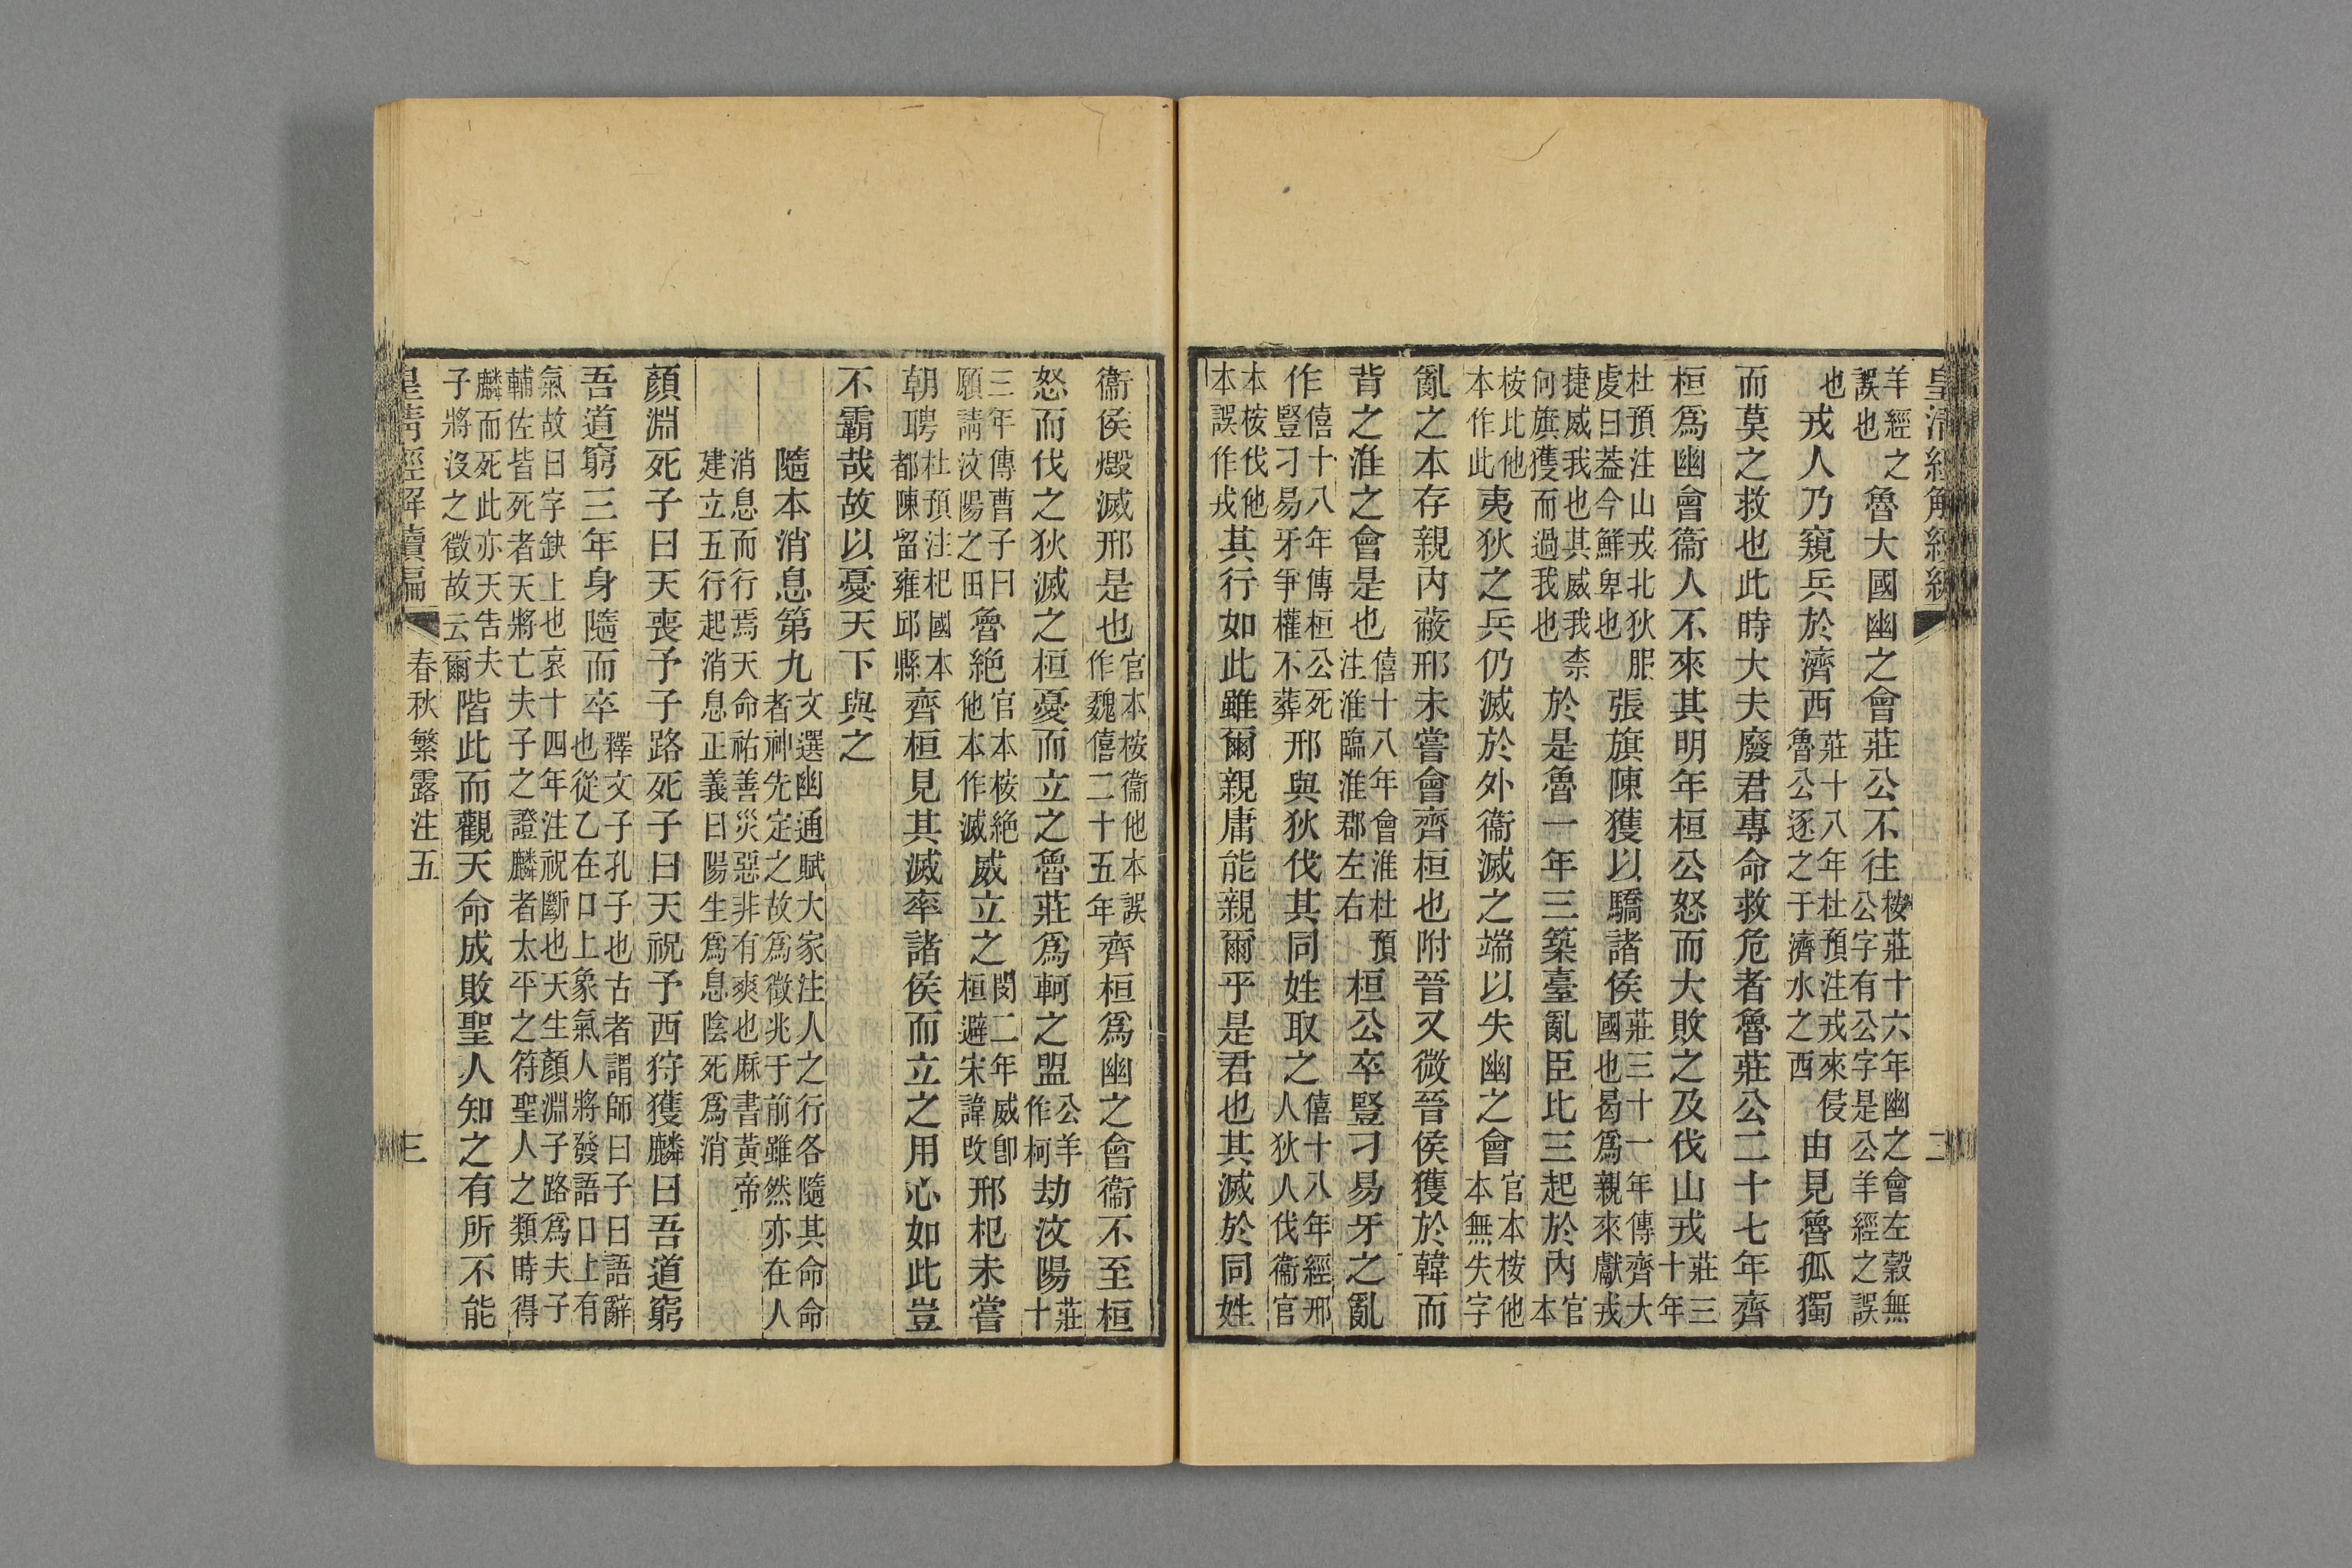 皇清經解續編 二
羊經之誤也魯大國幽之會莊公不往桉莊十六年幽之會左穀無公字有公字是公羊經之誤
也戎人乃窺兵於濟西莊十八年杜預注戎來侵魯公逐之于濟水之西由見魯孤獨
而莫之救也此時大夫廢君專命救危者魯莊公二十七年齊
桓爲幽會衞人不來其明年桓公怒而大敗之及伐山戎莊三十年
杜預注山戎北狄服虔曰葢今鮮卑也張旗陳獲以驕諸侯莊三十一年傳齊大國也曷爲親來獻戎
捷威我也其威我柰何旗獲而過我也於是魯一年三築臺亂臣比三起於內官本
桉比他本作此夷狄之兵仍滅於外衞滅之端以失幽之會官本桉他本無失字
亂之本存親內蔽邢未嘗會齊桓也附晉又微晉侯獲於韓而
背之淮之會是也僖十八年會淮杜預注淮臨淮郡左右桓公卒豎刁易牙之亂
作僖十八年傳桓公死豎刁易牙爭權不葬邢與狄伐其同姓取之僖十八年經邢人狄人伐衞官
本桉伐他本誤作戎其行如此雖爾親庸能親爾乎是君也其滅於同姓
衞侯燬滅邢是也官本桉衞他本誤作魏僖二十五年齊桓爲幽之會衞不至桓
怒而伐之狄滅之桓憂而立之魯莊爲軻之盟公羊作柯劫汶陽莊十
三年傳曹子曰願請汶陽之田魯絶官本桉絶他本作滅威立之閔二年威卽桓避宋諱改邢杞未嘗
朝聘杜預注杞國本都陳留雍邱縣齊桓見其滅率諸侯而立之用心如此豈
不霸哉故以憂天下與之
隨本消息第九文選幽通賦大家注人之行各隨其命命者神先定之故爲徵兆于前雖然亦在人
消息而行焉天命祐善災惡非有爽也厤書黃帝建立五行起消息正義曰陽生爲息陰死爲消
顏淵死子曰天喪予子路死子曰天祝予西狩獲麟曰吾道窮
吾道窮三年身隨而卒釋文子孔子也古者謂師曰子曰語辭也從乙在口上象氣人將發語口上有
氣故曰字缺上也哀十四年注祝斷也天生顏淵子路爲夫子輔佐皆死者天將亡夫子之證麟者太平之符聖人之類時得
麟而死此亦天告夫子將沒之徵故云爾階此而觀天命成敗聖人知之有所不能
皇清經解續編 春秋繁露注五 三